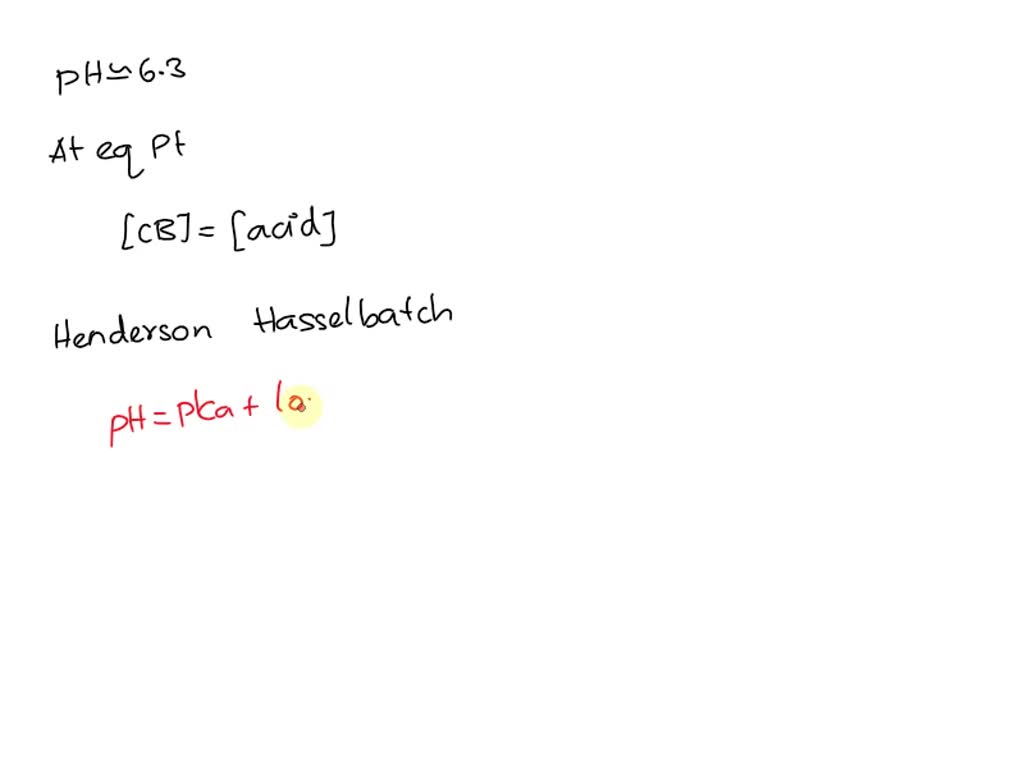 pH≃6.3
At eq Pt
[CB] = [acid]
Henderson Hasselbatch
pH = pKa + lo